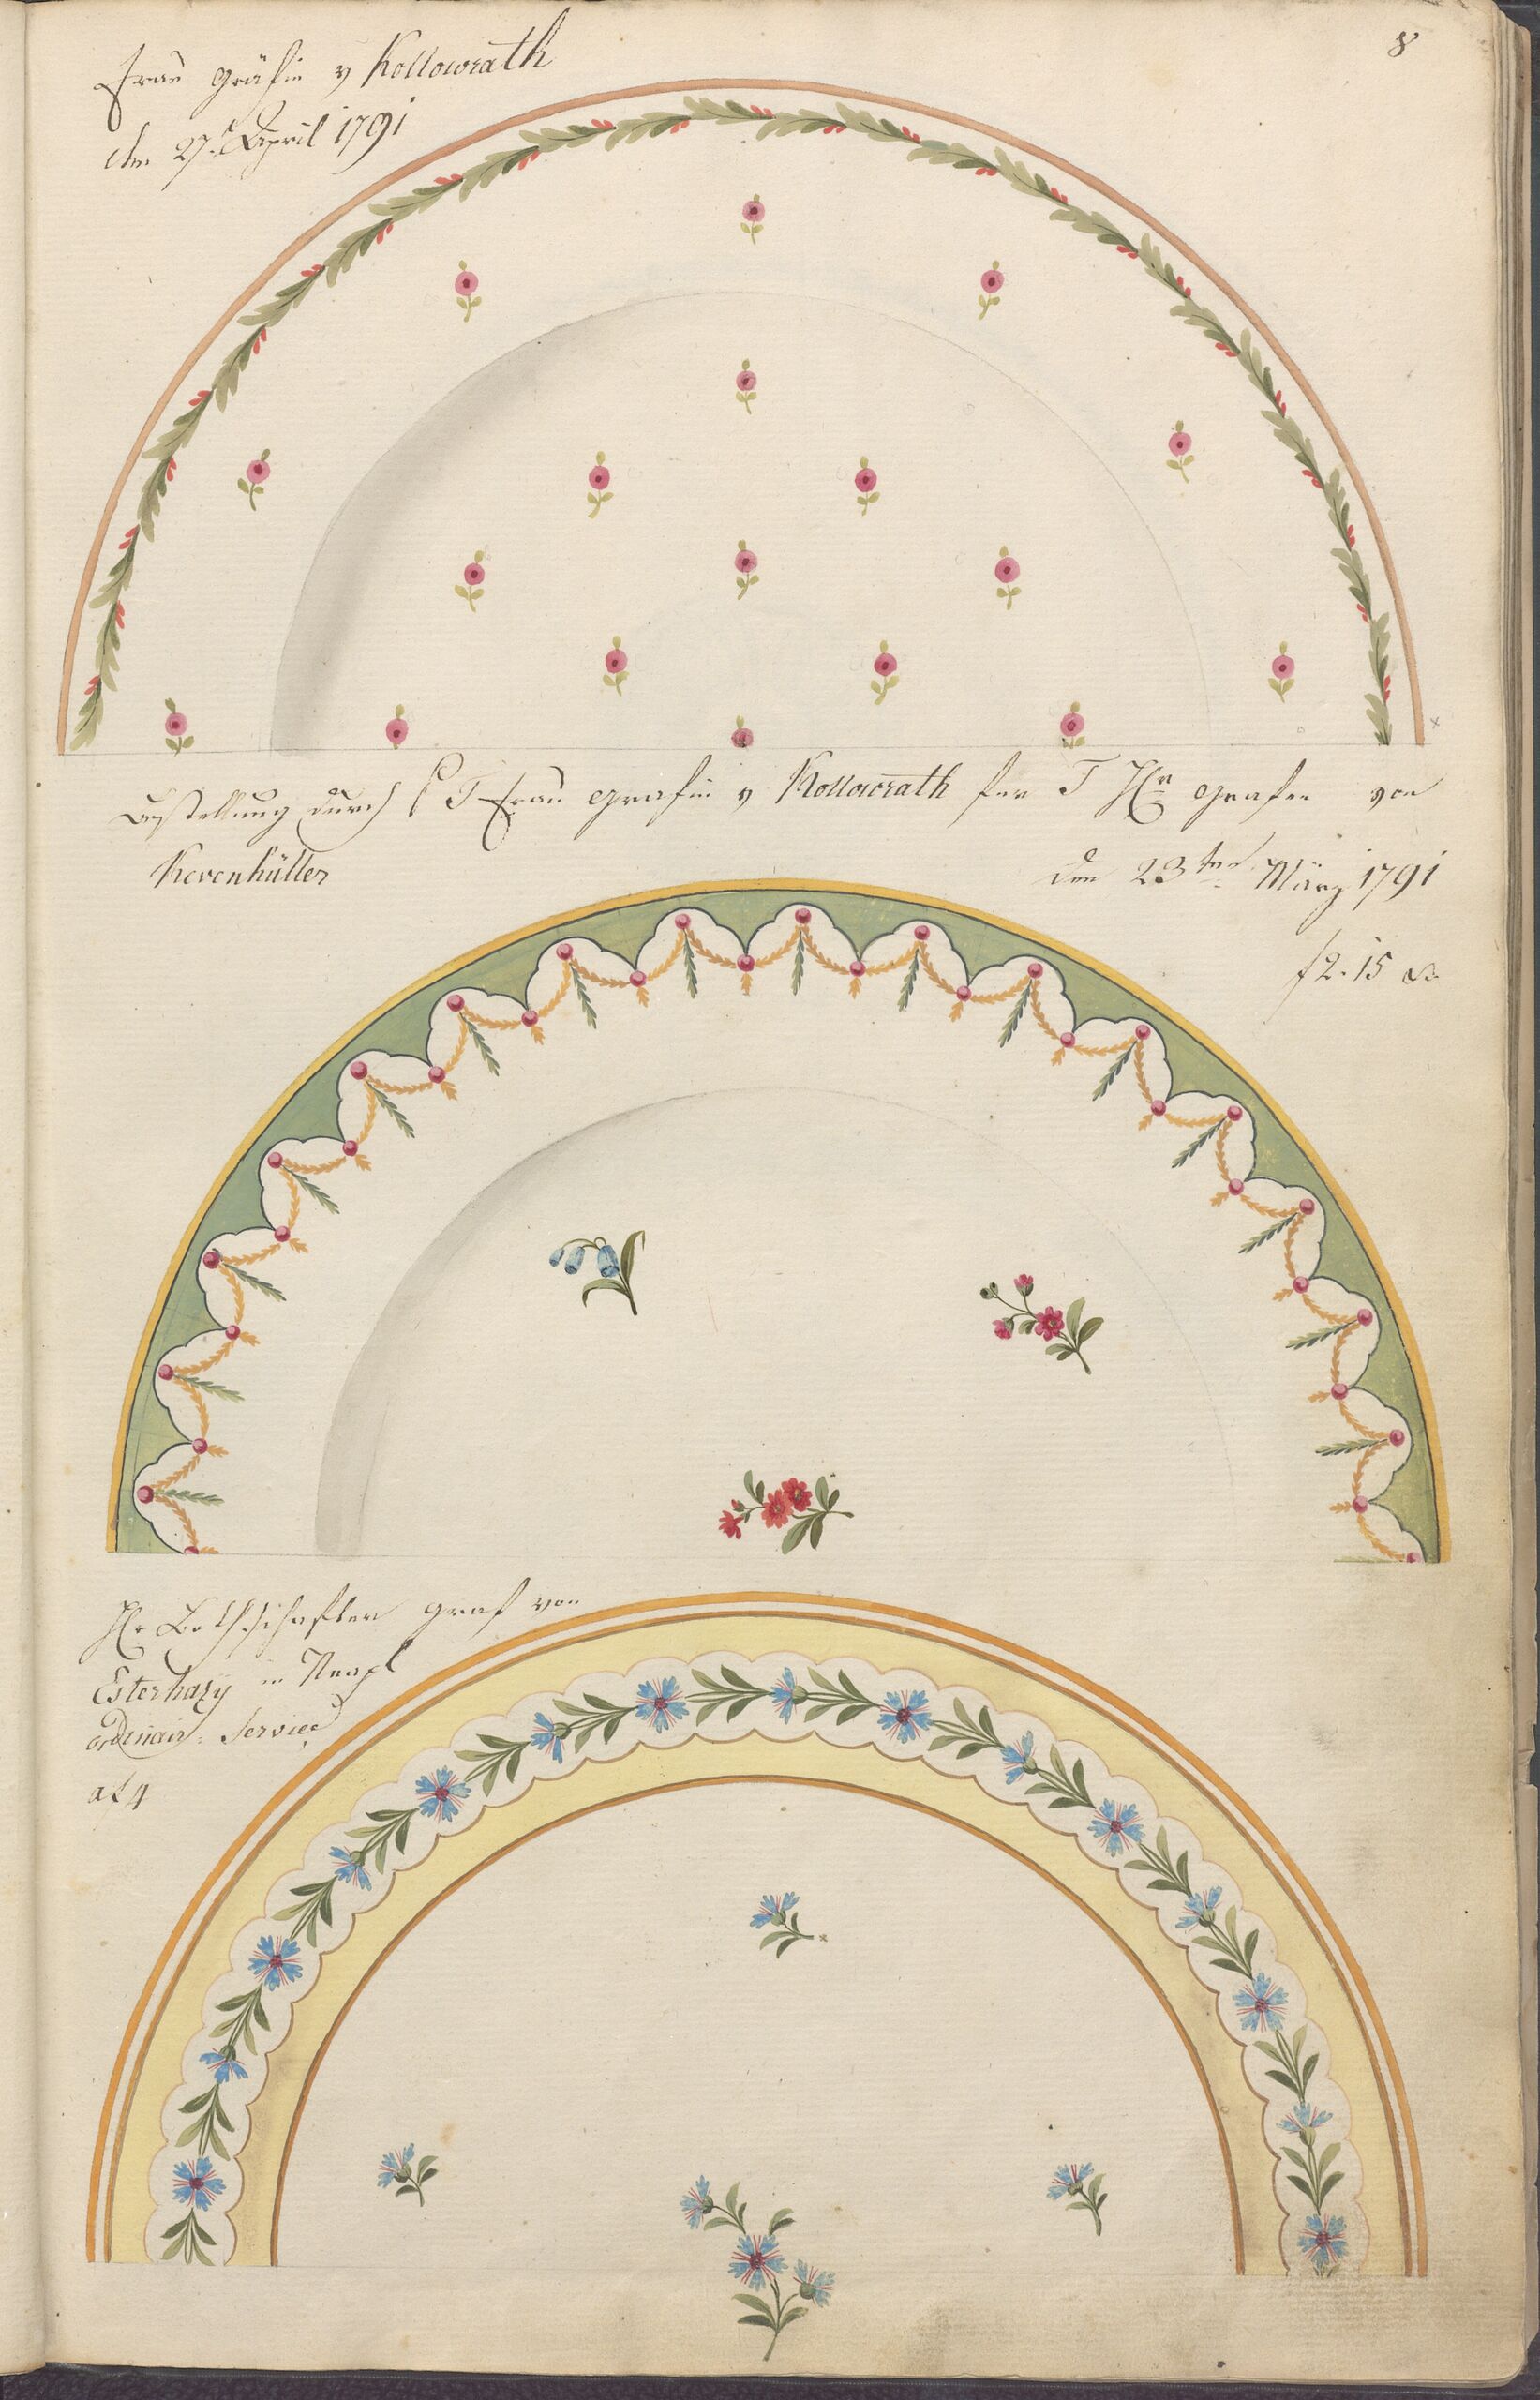 8
Frau Gräfin v Kollowrath
den 27t April 1791
Bestellung durch P T Frau Grafin v Kollowrath für T Hr Grafen von
Kevenhüller
den 23ten März 1791
f 2. 15
Hr Bothschafter Graf von
Esterhazy in Neapl
ordinair: Service